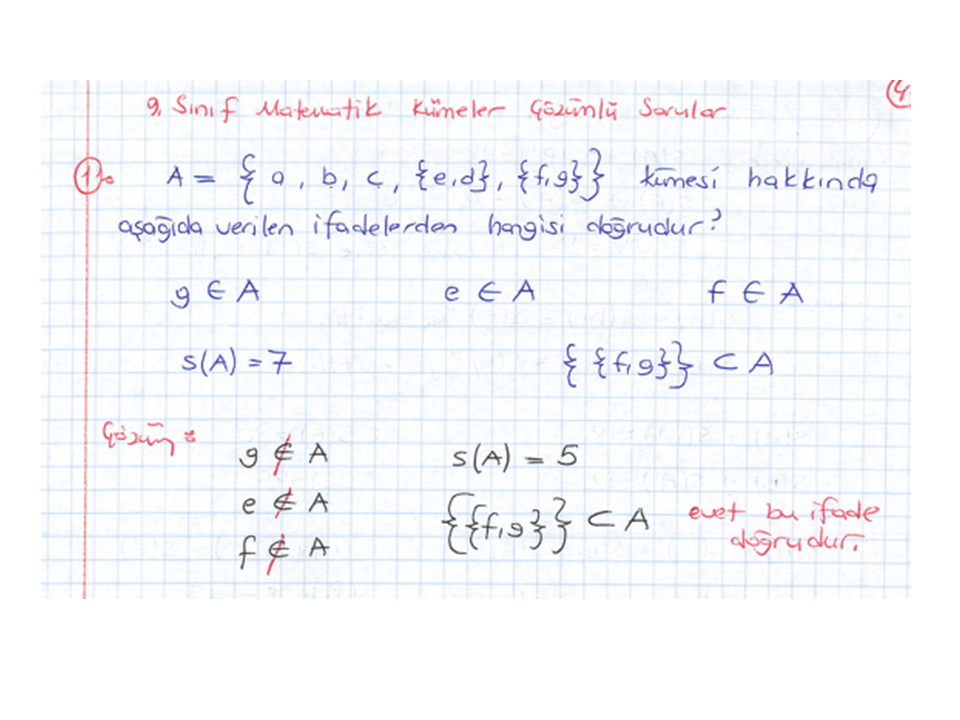 4
9. Sınıf Matematik Kümeler Çözümlü Sorular
1. A = { a, b, c, {e,d}, {f,g}} kümesi hakkında
aşağıda verilen ifadelerden hangisi doğrudur?
g ∈ A e ∈ A f ∈ A
s(A) = 7 { {f,g}} ⊂ A
Çözüm:
g ∉ A s(A) = 5
e ∉ A {{f,g}} ⊂ A evet bu ifade
f ∉ A doğrudur.